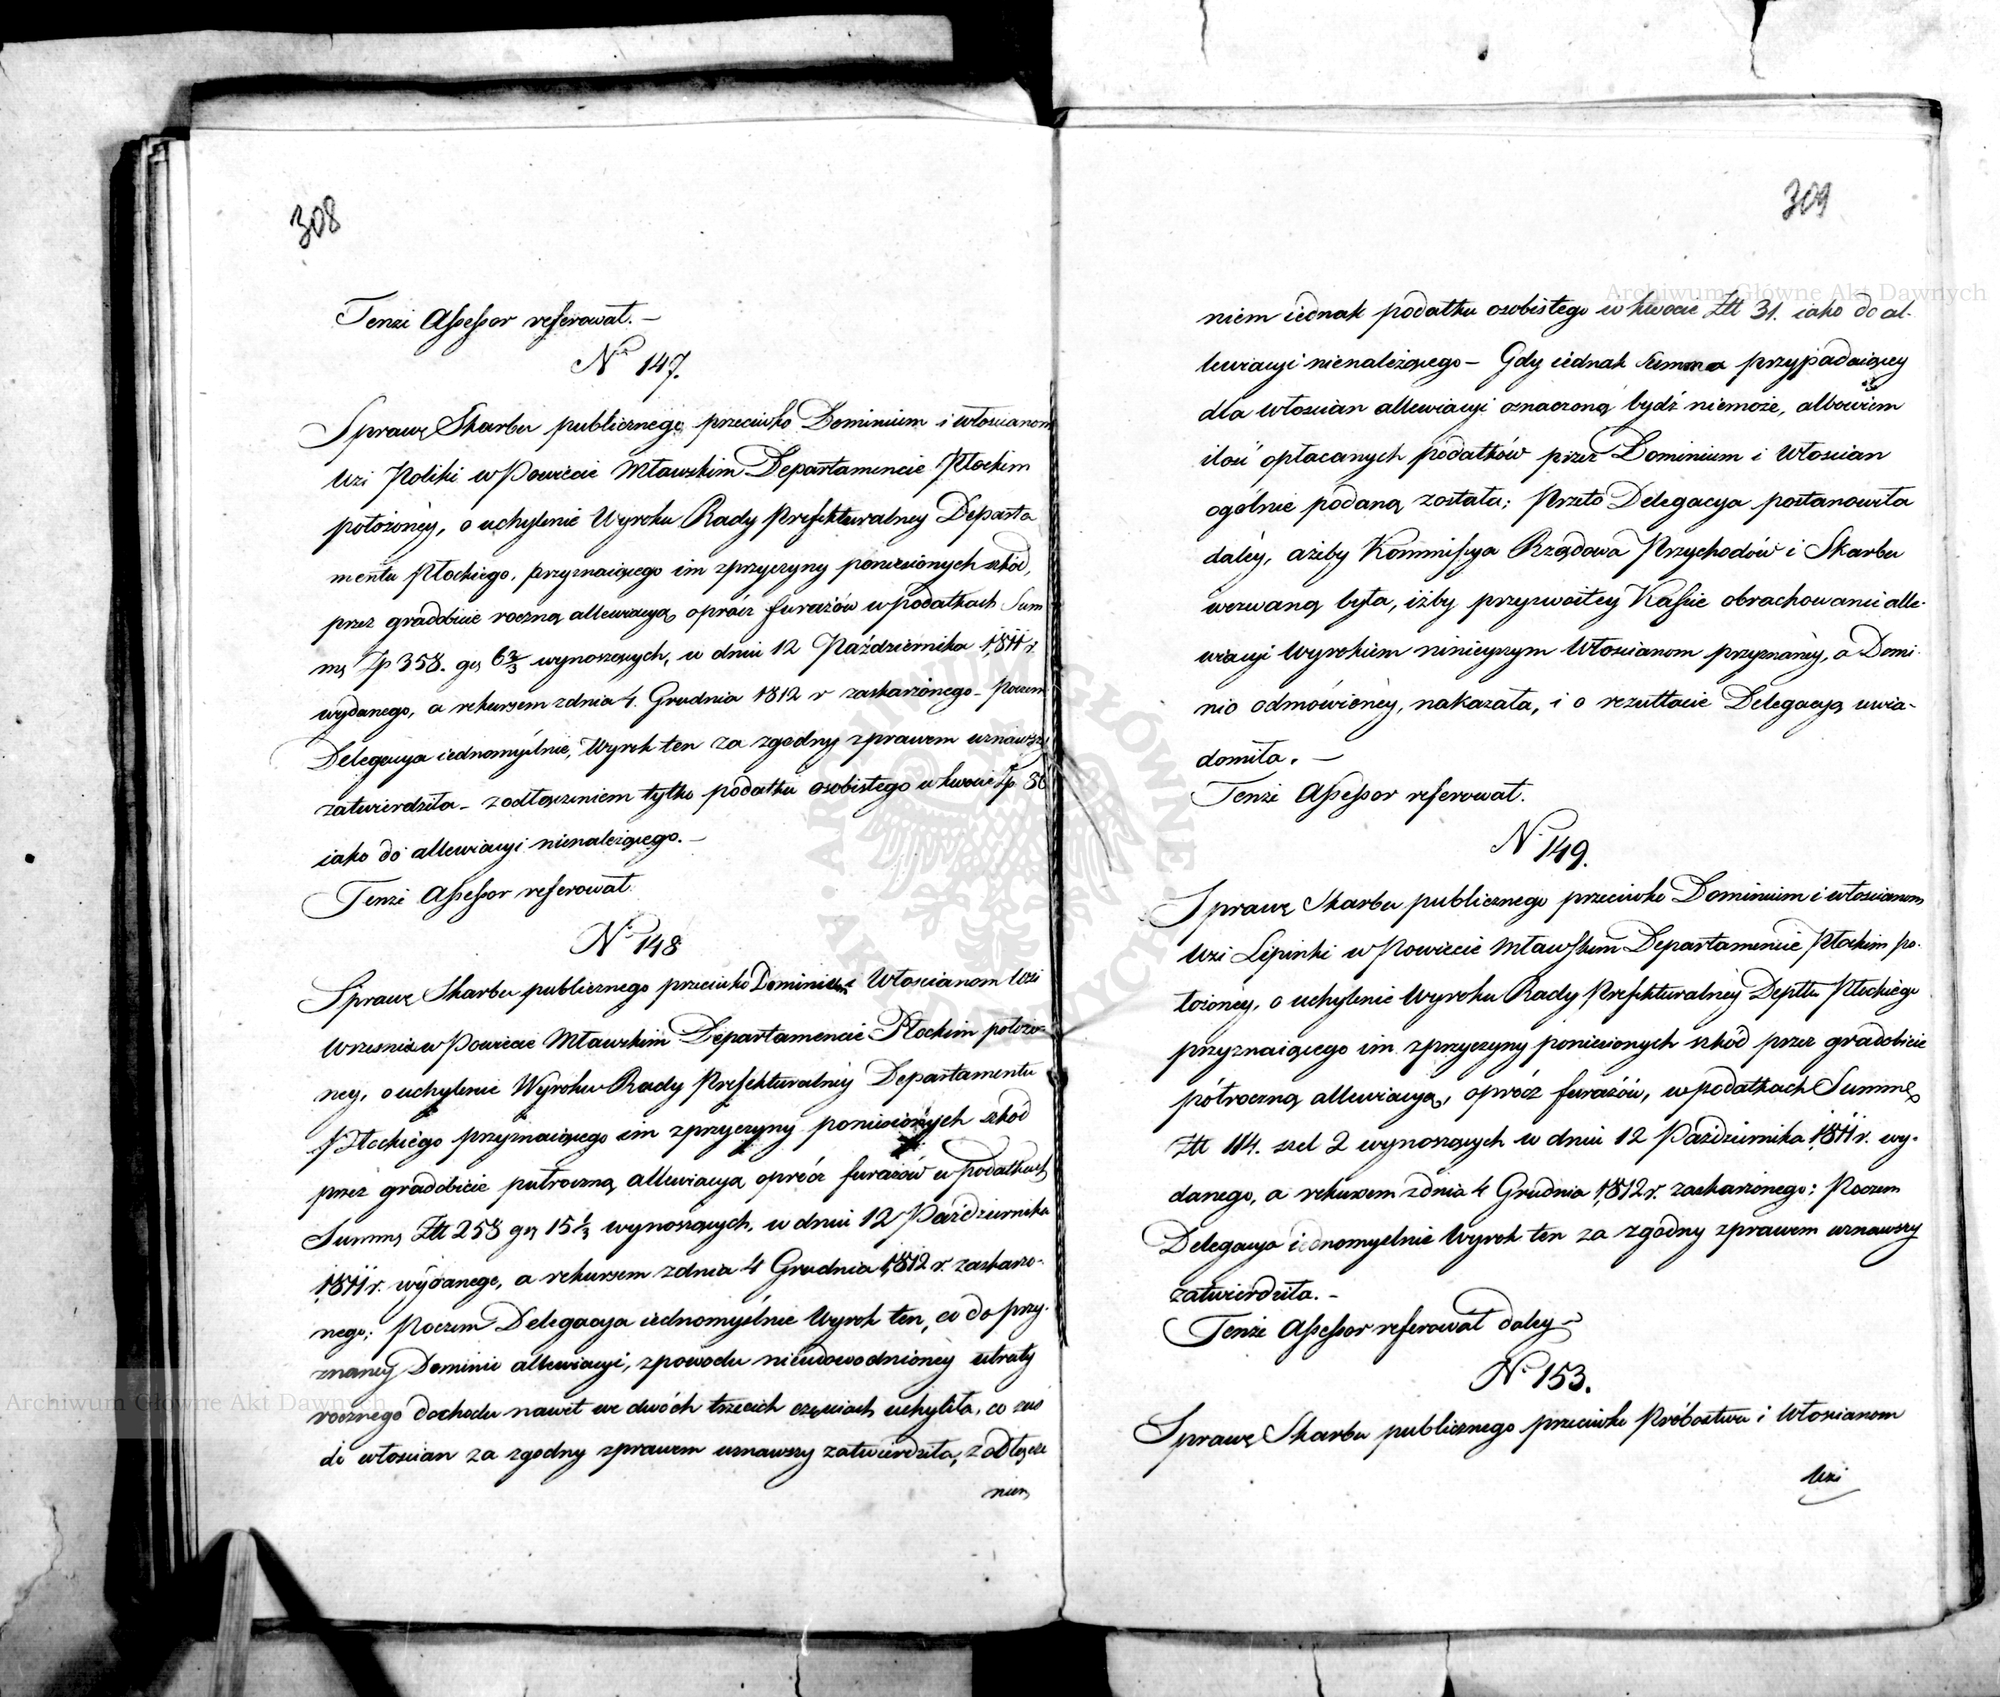 308
Tenże Assessor referował. —
Nro 147.
Sprawę Skarbu publicznego przeciwko Dominium i włościanom
Wsi Poliki w Powiecie Mławskim Departamencie Płockim
położoney, o uchylenie Wyroku Rady Prefekturalney Departa
mentu Płockiego, przyznaiącego im zprzyczyny poniesionych szkód,
przez gradobicie roczną allewiacyą oprócz furażów w podatkach Sum
mę Zp 358. gr 6 2/3 wynoszących, w dniu 12 Października 1811 r.
wydanego, a rekursem zdnia 4. Grudnia 1812 r zaskarżonego – Poczem
Delegacya iednomyślnie, Wyrok ten za zgodny zprawem uznawszy
zatwierdziła – zodłączeniem tylko podatku osobistego w kwocie Zp 30
iako do allewiacyi nienależącego. —
Tenże Assessor referował.
No 148
Sprawę Skarbu publicznego przeciwko Dominium i Włościanom Wsi
Września w Powiecie Mławskim Departamencie Płockim położo-
ney, o uchylenie Wyroku Rady Prefekturalney Departamentu
Płockiego przyznaiącego im zprzyczyny poniesionych szkód
przez gradobicie pułroczną allewiacyą oprócz furażów w podatkach
Summę Złt 258 gr 15 1/3 wynoszących, w dniu 12 Października
1811 r. wydanego, a rekursem zdnia 4 Grudnia 1812 r. zaskarżo-
nego; Poczem Delegacya iednomyślnie Wyrok ten, co do przy-
znaney Dominio allewiacyi, zpowodu nieudowodnioney utraty
rocznego dochodu nawet we dwóch trzecich częściach uchyliła, co zaś
do włościan za zgodny zprawem uznawszy zatwierdziła, zodłącze
niem
309
niem iednak podatku osobistego w kwocie Złt 31. iako do al-
lewiacyi nienależącego – Gdy iednak Summa przypadaiącey
dla włościan allewiacyi oznaczoną bydź niemoże, albowiem
ilość opłacanych podatków przez Dominium i Włościan
ogólnie podaną została; Przeto Delegacya postanowiła
daley, ażeby Kommissya Rządowa Przychodów i Skarbu
wezwaną była, iżby przyzwoitey Kassie obrachowanie alle-
wiacyi Wyrokiem ninieyszym Włościanom przyznaney, a Domi-
nio odmówioney, nakazała, i o rezultacie Delegacyą uwia-
domiła. —
Tenże Assessor referował.
No 149.
Sprawę Skarbu publicznego przeciwko Dominium i włościanom
Wsi Lipinki w Powiecie Mławskim Departamencie Płockim po-
łożoney, o uchylenie Wyroku Rady Prefekturalney Depttu Płockiego
przyznaiącego im zprzyczyny poniesionych szkód przez gradobicie
półroczną allewiacyą, oprócz furażów, w podatkach Summę
Złt 114. szel 2 wynoszących w dniu 12 Października 1811 r. wy-
danego, a rekursem zdnia 4 Grudnia 1812 r. zaskarżonego; Poczem
Delegacya iednomyślnie Wyrok ten za zgodny zprawem uznawszy
zatwierdziła. –
Tenże Assessor referował daley –
No 153.
Sprawę Skarbu publicznego przeciwko Próbostwu i Włościanom
Wsi
Archiwum Główne Akt Dawnych
Archiwum Główne Akt Dawnych